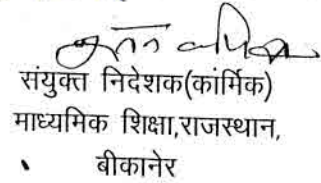 संयुक्त निदेशक(कांर्मिक)
माध्यमिक शिक्षा,राजस्थान,
बीकानेर